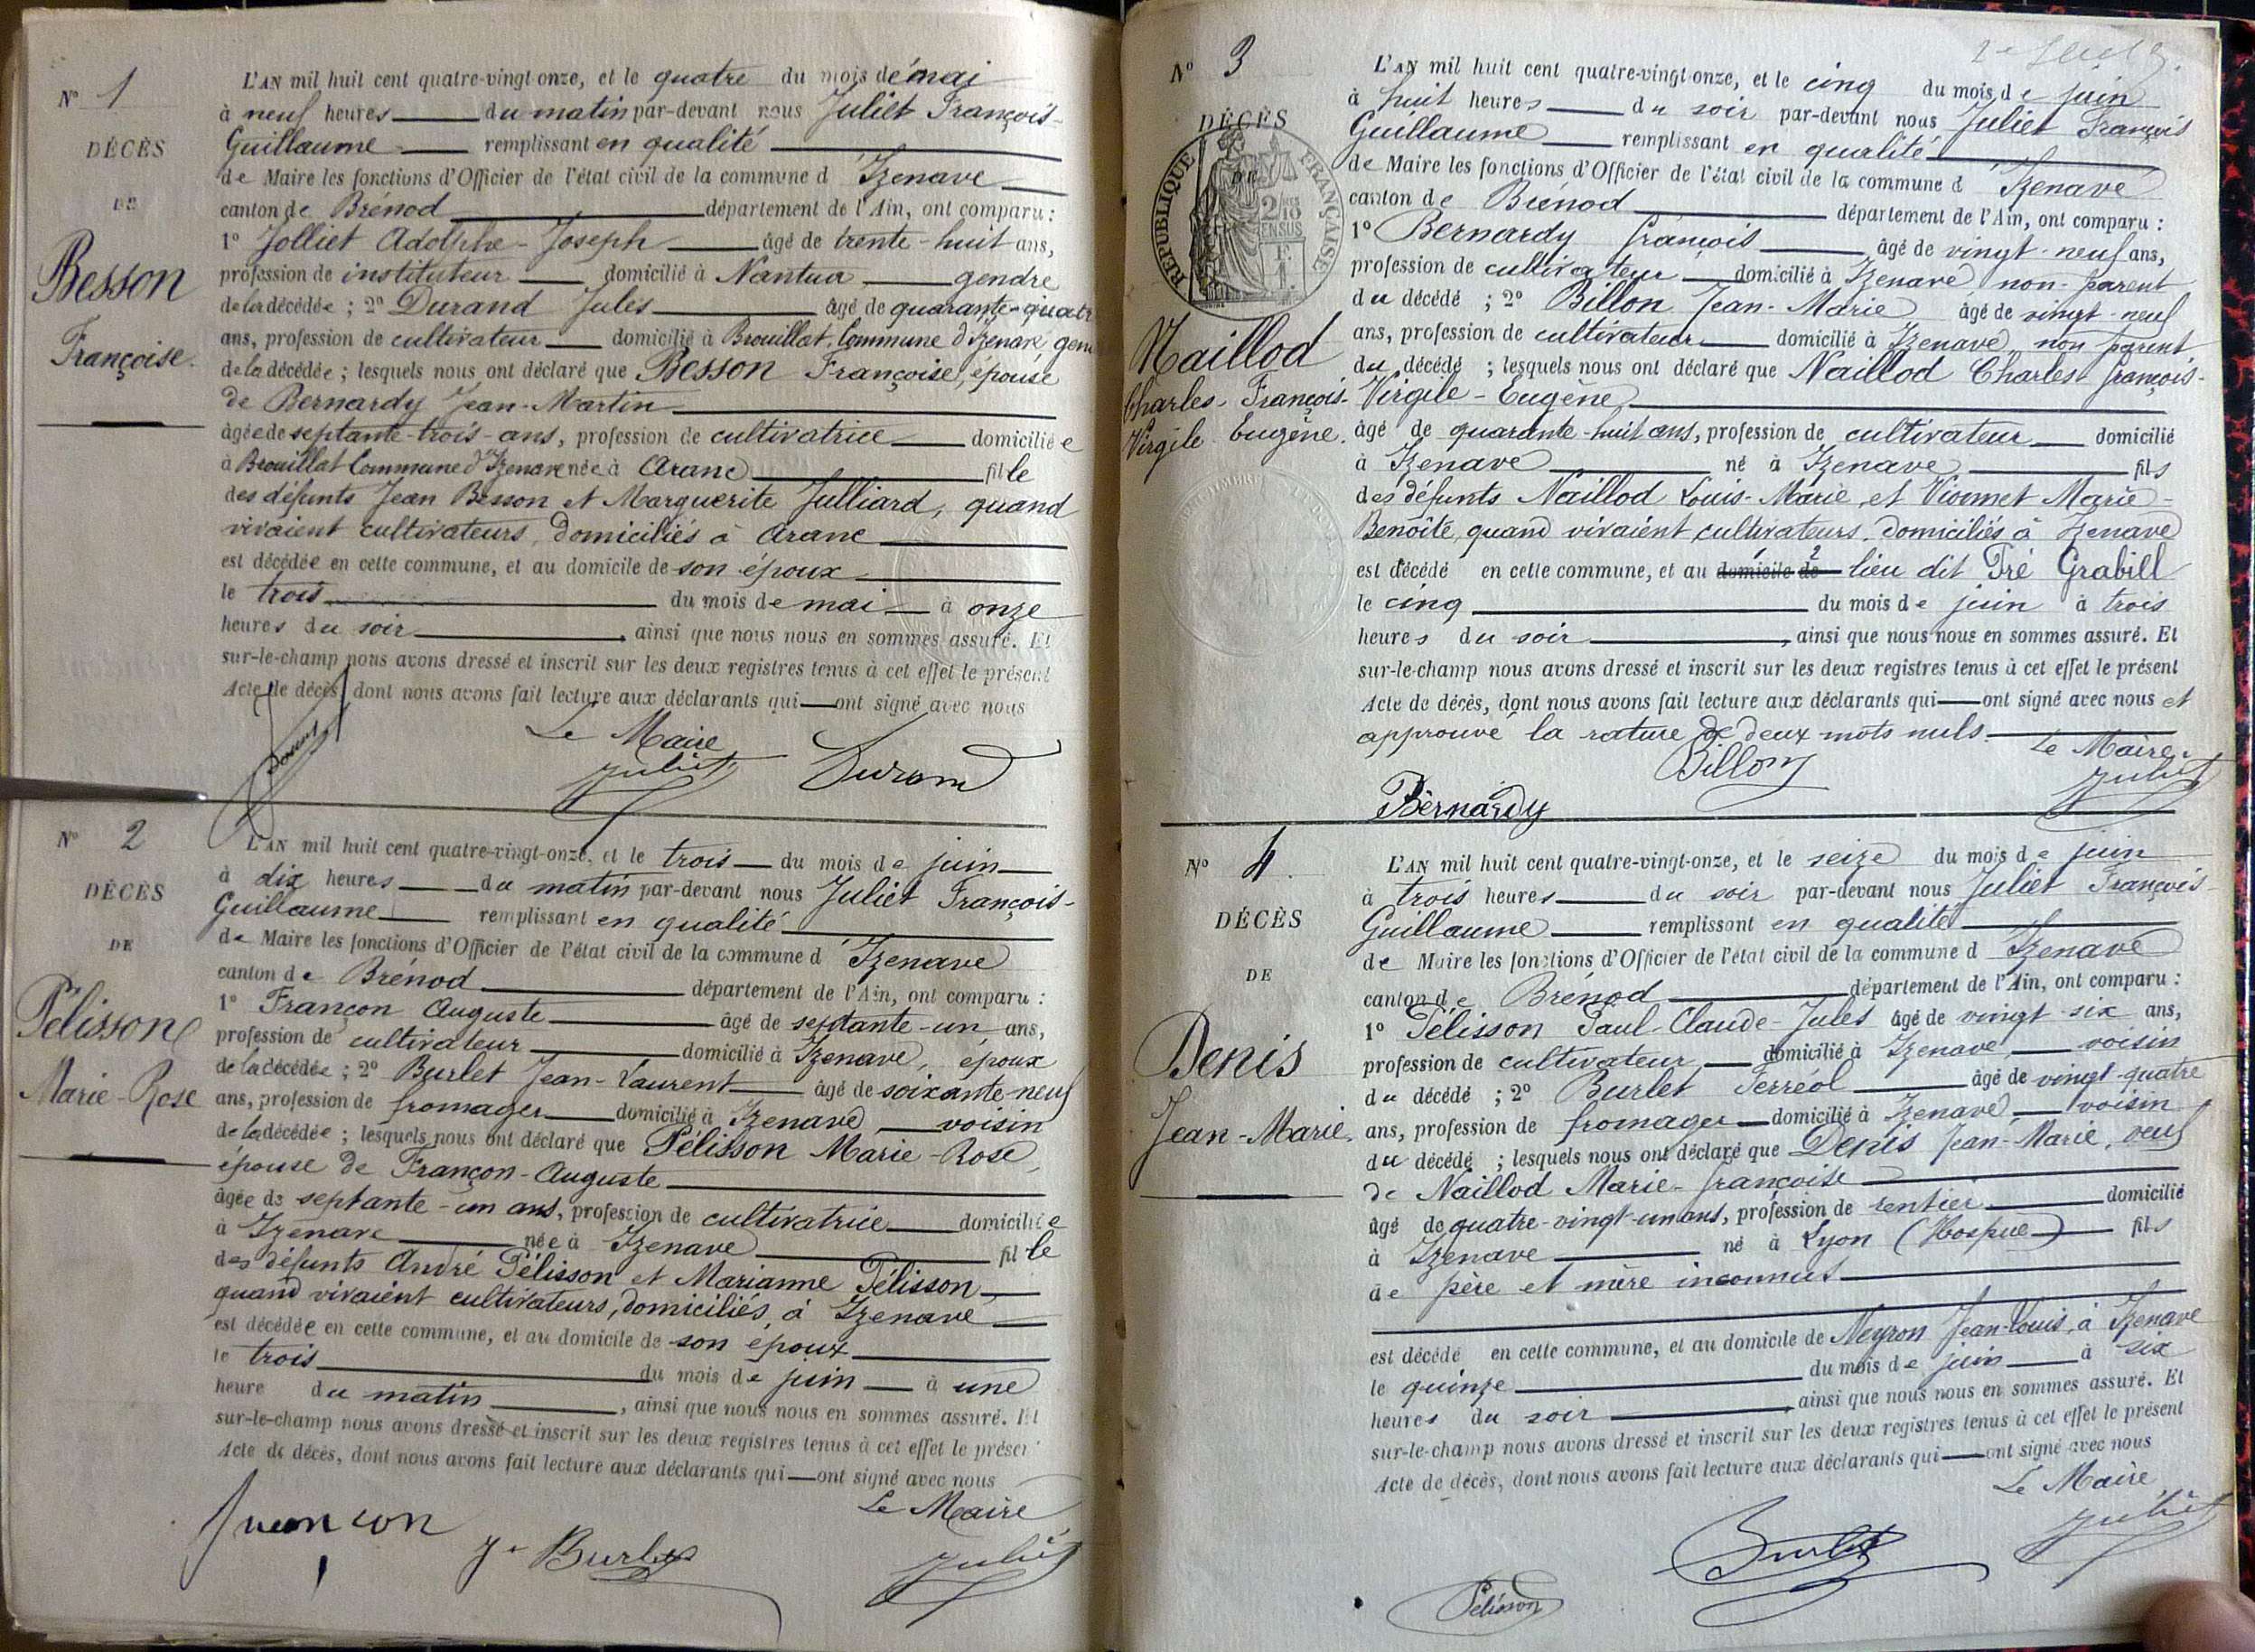 N° 1
DÉCÈS
DE
Besson
Françoise.
L'AN mil huit cent quatre-vingt onze, et le quatre du mois de mai
à neuf heures du matin par-devant nous Juliet François-
Guillaume remplissant en qualité
de Maire les fonctions d'Officier de l'état civil de la commune d'Izenave
canton de Brénod département de l'Ain, ont comparu :
1° Jolliet Adolphe-Joseph âgé de trente-huit ans,
profession de instituteur domicilié à Nantua gendre
de la décédée ; 2° Durand Jules âgé de quarante-quatr
ans, profession de cultivateur domicilié à Brouillat, Commune d'Izenave gen
de la décédée ; lesquels nous ont déclaré que Besson Françoise, épouse
de Bernardy Jean-Martin
âgée de septante-trois-ans, profession de cultivatrice domiciliée
à Brouillat Commune d'Izenave née à Aranc fille
des défunts Jean Besson et Marguerite Julliard, quand
vivaient cultivateurs, domiciliés à Aranc
est décédée en cette commune, et au domicile de son époux
le trois du mois de mai à onze
heures du soir, ainsi que nous nous en sommes assuré. Et
sur-le-champ nous avons dressé et inscrit sur les deux registres tenus à cet effet le présent
Acte de décès, dont nous avons fait lecture aux déclarants qui ont signé avec nous
Le Maire
Juliet Durand
N° 2
DÉCÈS
DE
Pélisson
Marie-Rose
L'AN mil huit cent quatre-vingt-onze, et le trois du mois de juin
à dix heures du matin par-devant nous Juliet François-
Guillaume remplissant en qualité
de Maire les fonctions d'Officier de l'état civil de la commune d'Izenave
canton de Brénod département de l'Ain, ont comparu :
1° Françon Auguste âgé de septante-un ans,
profession de cultivateur domicilié à Izenave, époux
de la décédée ; 2° Burlet Jean-Laurent âgé de soixante-neuf
ans, profession de fromager domicilié à Izenave, voisin
de la décédée ; lesquels nous ont déclaré que Pélisson Marie-Rose,
épouse de Françon-Auguste
âgée de septante-un ans, profession de cultivatrice domiciliée
à Izenave née à Izenave fille
des défunts André Pélisson et Marianne Pélisson,
quand vivaient cultivateurs, domiciliés, à Izenave
est décédée en cette commune, et au domicile de son époux
le trois du mois de juin à une
heure du matin, ainsi que nous nous en sommes assuré. Et
sur-le-champ nous avons dressé et inscrit sur les deux registres tenus à cet effet le présen
Acte de décès, dont nous avons fait lecture aux déclarants qui ont signé avec nous
Le Maire
Françon Jn Burlet Juliet
N° 3
DÉCÈS
DE
RÉPUBLIQUE FRANÇAISE
Naillod
Charles-François-
Virgile Eugène.
L'AN mil huit cent quatre-vingt-onze, et le cinq du mois de juin
à huit heures du soir par-devant nous Juliet François
Guillaume remplissant en qualité
de Maire les fonctions d'Officier de l'état civil de la commune d'Izenave
canton de Brénod département de l'Ain, ont comparu :
1° Bernardy François âgé de vingt-neuf ans,
profession de cultivateur domicilié à Izenave non-parent
du décédé ; 2° Billon Jean-Marie âgé de vingt-neuf
ans, profession de cultivateur domicilié à Izenave non parent
du décédé ; lesquels nous ont déclaré que Naillod Charles François-
Virgile-Eugène,
âgé de quarante-huit ans, profession de cultivateur domicilié
à Izenave né à Izenave fils
des défunts Naillod Louis-Marie, et Vionnet Marie-
Benoîte, quand vivaient cultivateurs, domiciliés à Izenave
est décédé en cette commune, et au domicile de lieu dit Pré Grabill
le cinq du mois de juin à trois
heures du soir, ainsi que nous nous en sommes assuré. Et
sur-le-champ nous avons dressé et inscrit sur les deux registres tenus à cet effet le présent
Acte de décès, dont nous avons fait lecture aux déclarants qui ont signé avec nous et
approuvé la rature de deux mots nuls. Le Maire
Billon Juliet
Bernardy
N° 4.
DÉCÈS
DE
Denis
Jean-Marie.
L'AN mil huit cent quatre-vingt-onze, et le seize du mois de juin
à trois heures du soir par-devant nous Juliet François-
Guillaume remplissant en qualité
de Maire les fonctions d'Officier de l'état civil de la commune d'Izenave
canton de Brénod département de l'Ain, ont comparu :
1° Pélisson Paul-Claude-Jules âgé de vingt-six ans,
profession de cultivateur domicilié à Izenave, voisin
du décédé ; 2° Burlet Ferréol âgé de vingt-quatre
ans, profession de fromager domicilié à Izenave voisin
du décédé ; lesquels nous ont déclaré que Denis Jean-Marie, veuf
de Naillod Marie-Françoise
âgé de quatre-vingt-un ans, profession de rentier domicilié
à Izenave né à Lyon (Hospice) fils
de père et mère inconnus
est décédé en cette commune, et au domicile de Neyron Jean-Louis, à Izenave
le quinze du mois de juin à six
heures du soir, ainsi que nous nous en sommes assuré. Et
sur-le-champ nous avons dressé et inscrit sur les deux registres tenus à cet effet le présent
Acte de décès, dont nous avons fait lecture aux déclarants qui ont signé avec nous
Le Maire
Burlet Juliet
Pélisson